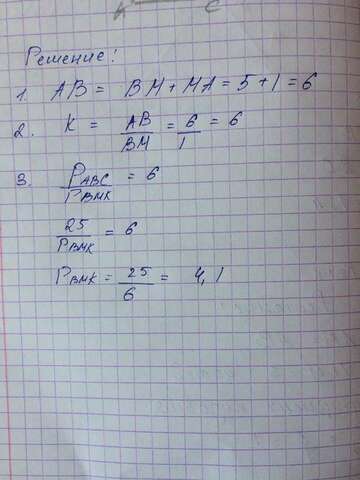 A C
Решение:
1. AB = BM + MA = 5 + 1 = 6
2. K = AB/BM = 6/1 = 6
3. PABC/PBMK = 6
25/PBMK = 6
PBMK = 25/6 = 4,1